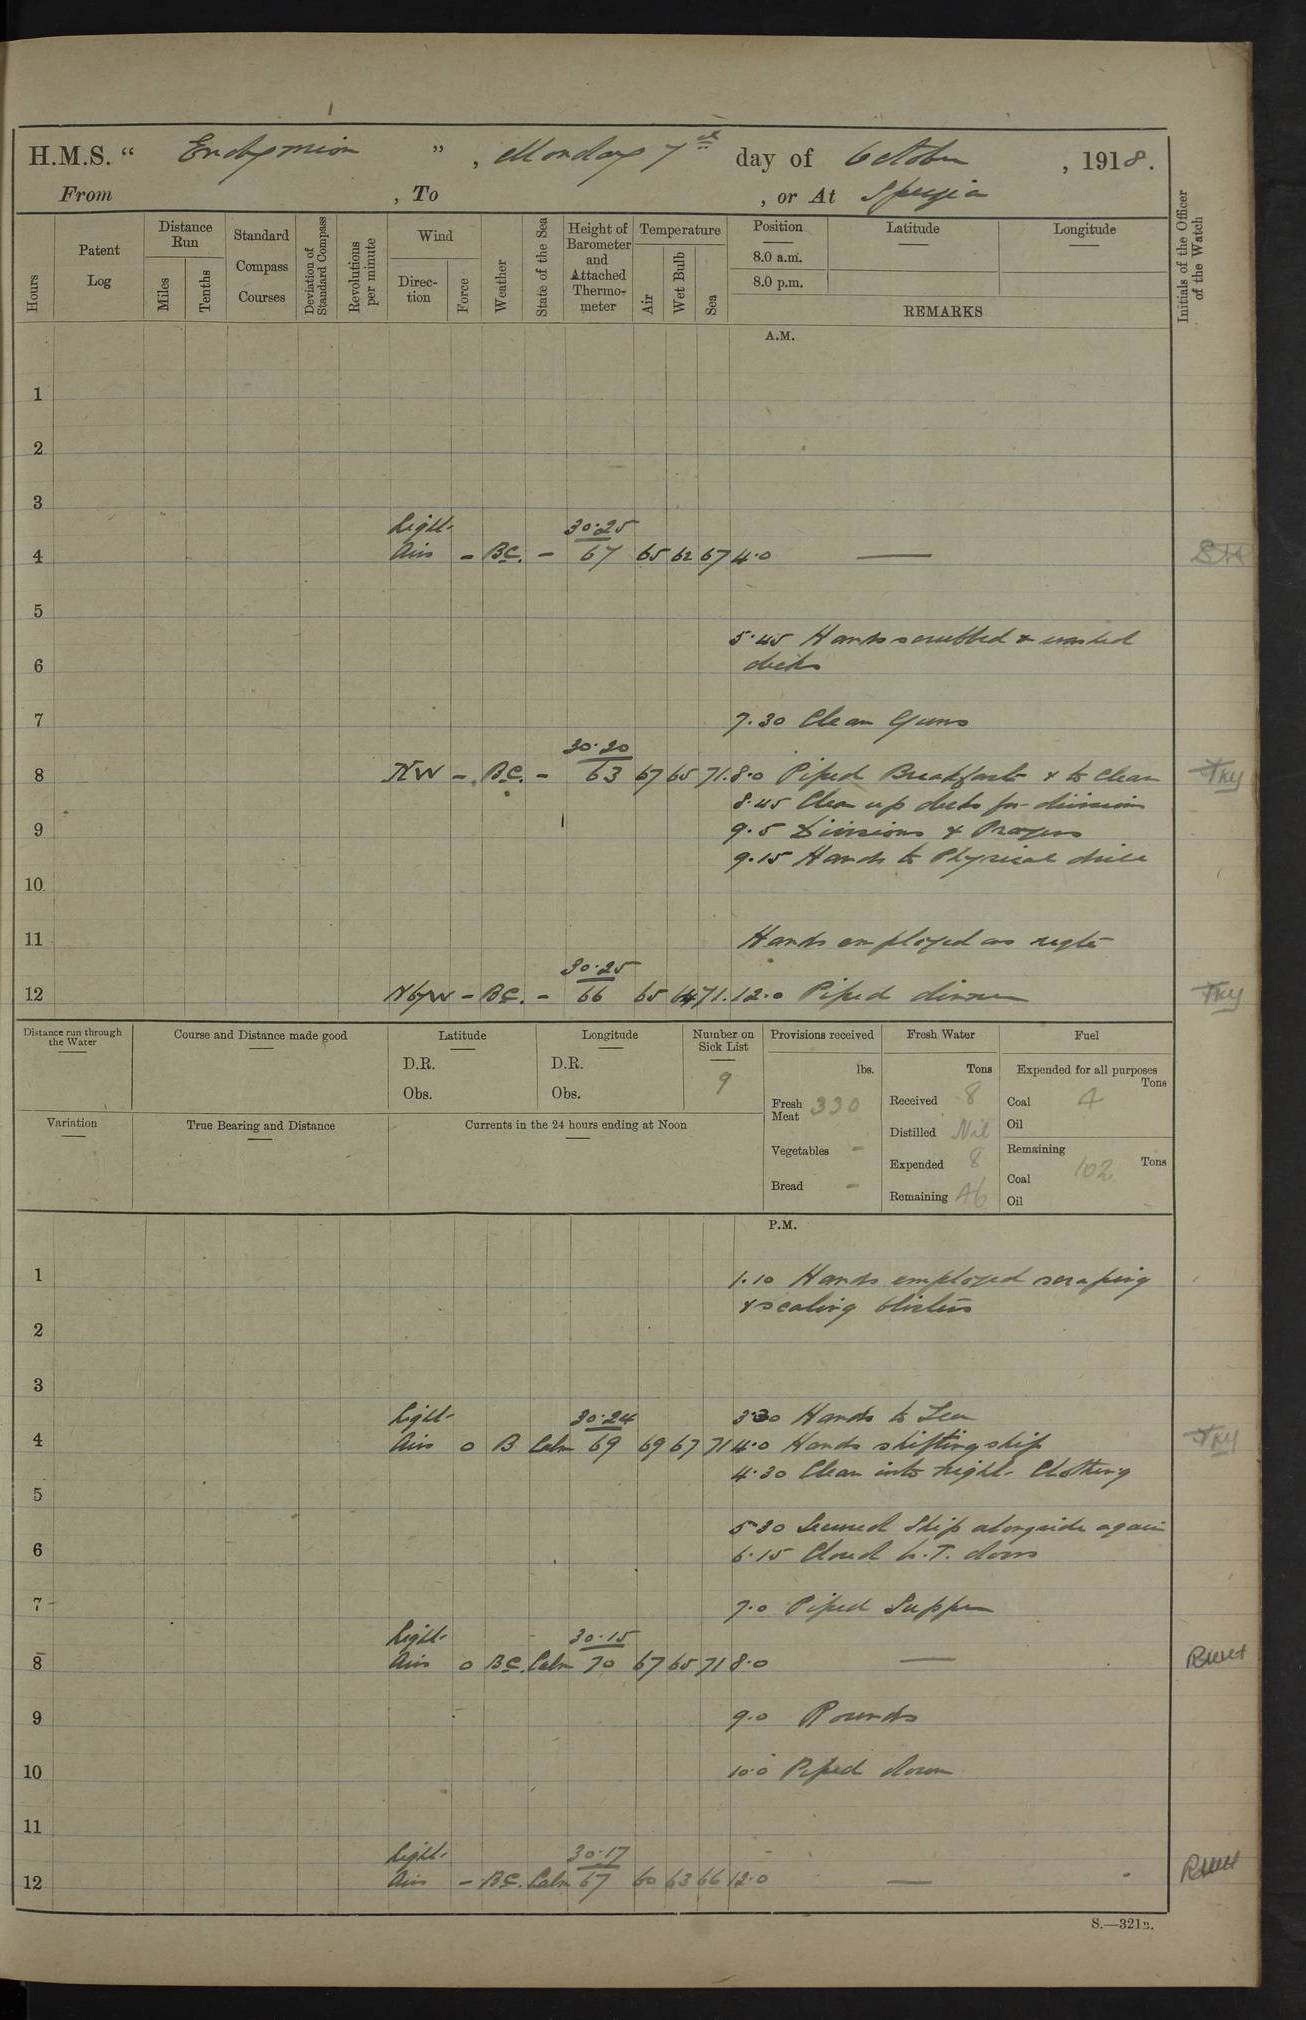 H.M.S. “ Endymion ” , Monday 7th day of October , 1918.
From , To , or At Spezia
Hours
Patent Log
Distance Run
Miles
Tenths
Standard Compass Courses
Deviation of Standard Compass
Revolutions per minute
Wind
Direction
Force
Weather
State of the Sea
Height of Barometer and Attached Thermometer
Temperature
Air
Wet Bulb
Sea
Position
8.0 a.m.
8.0 p.m.
Latitude
Longitude
REMARKS
Initials of the Officer of the Watch
A.M.
1
2
3
Light 30.25
4 Airs - BC. - 67 65 62 67 4.0 —
5
5.45 Hands scrubbed & washed
6 decks
7 7.30 Clean Guns
30.20
8 NW - BC. - 63 67 65 71. 8.0 Piped Breakfast & to Clean TKY
8.45 Clean up decks for division
9 9.5 Divisions & Prayers
9.15 Hands to Physical drill
10
11 Hands employed as reqte
30.25
12 NbyW - BC. - 66 65 64 71. 12.0 Piped dinner TKY
Distance run through the Water
Course and Distance made good
Latitude
D.R.
Obs.
Longitude
D.R.
Obs.
Number on Sick List
9
Provisions received
lbs.
Fresh Meat 330
Vegetables -
Bread -
Fresh Water
Tons
Received 8
Distilled Nil
Expended 8
Remaining 46
Fuel
Expended for all purposes
Tons
Coal 4
Oil
Remaining
Tons
Coal 102
Oil
Variation
True Bearing and Distance
Currents in the 24 hours ending at Noon
P.M.
1 1.10 Hands employed scraping
& scaling blisters
2
3
Light 30.24 3.30 Hands to Tea
4 Airs 0 B Calm 69 69 67 71 4.0 Hands shifting ship TKY
4.30 Clean into night Clothing
5
5.30 Secured Ship alongside again
6 6.15 Closed W.T. doors
7 7.0 Piped Supper
Light 30.15
8 Airs 0 BC. Calm 70 67 65 71 8.0 —
9 9.0 Rounds
10 10.0 Piped down
11
Light 30.17
12 Airs - BC. Calm 67 60 63 66 12.0 —
S.—321B.